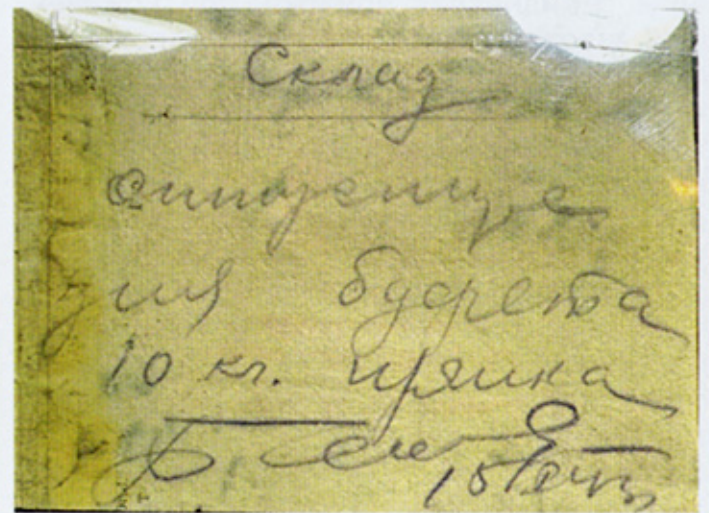 Склад
отпустите
для буфета
10 кг. пряника
15/